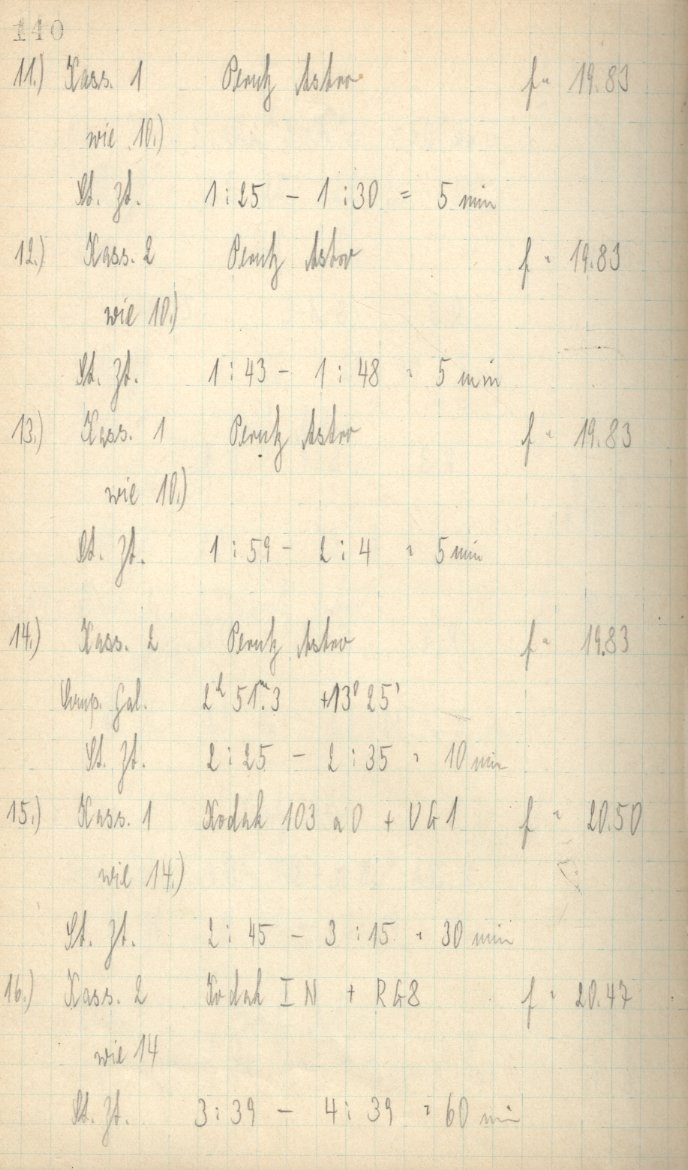 140
11.) Kass. 1 Perutz Astro f = 19.83
wie 10.)
St. Zt. 1:25 - 1:30 = 5 min
12.) Kass. 2 Perutz Astro f = 19.83
wie 10.)
St. Zt. 1:43 - 1:48 = 5 min
13.) Kass. 1 Perutz Astro f = 19.83
wie 10.)
St. Zt. 1:59 - 2:4 = 5 min
14.) Kass. 2 Perutz Astro f = 19.83
Comp. Gal. 2h 51m.3 +13° 25'
St. Zt. 2:25 - 2:35 = 10 min
15.) Kass. 1 Kodak 103 aO + UG1 f = 20.50
wie 14.)
St. Zt. 2:45 - 3:15 = 30 min
16.) Kass. 2 Kodak I N + RG8 f = 20.47
wie 14
St. Zt. 3:39 - 4:39 = 60 min